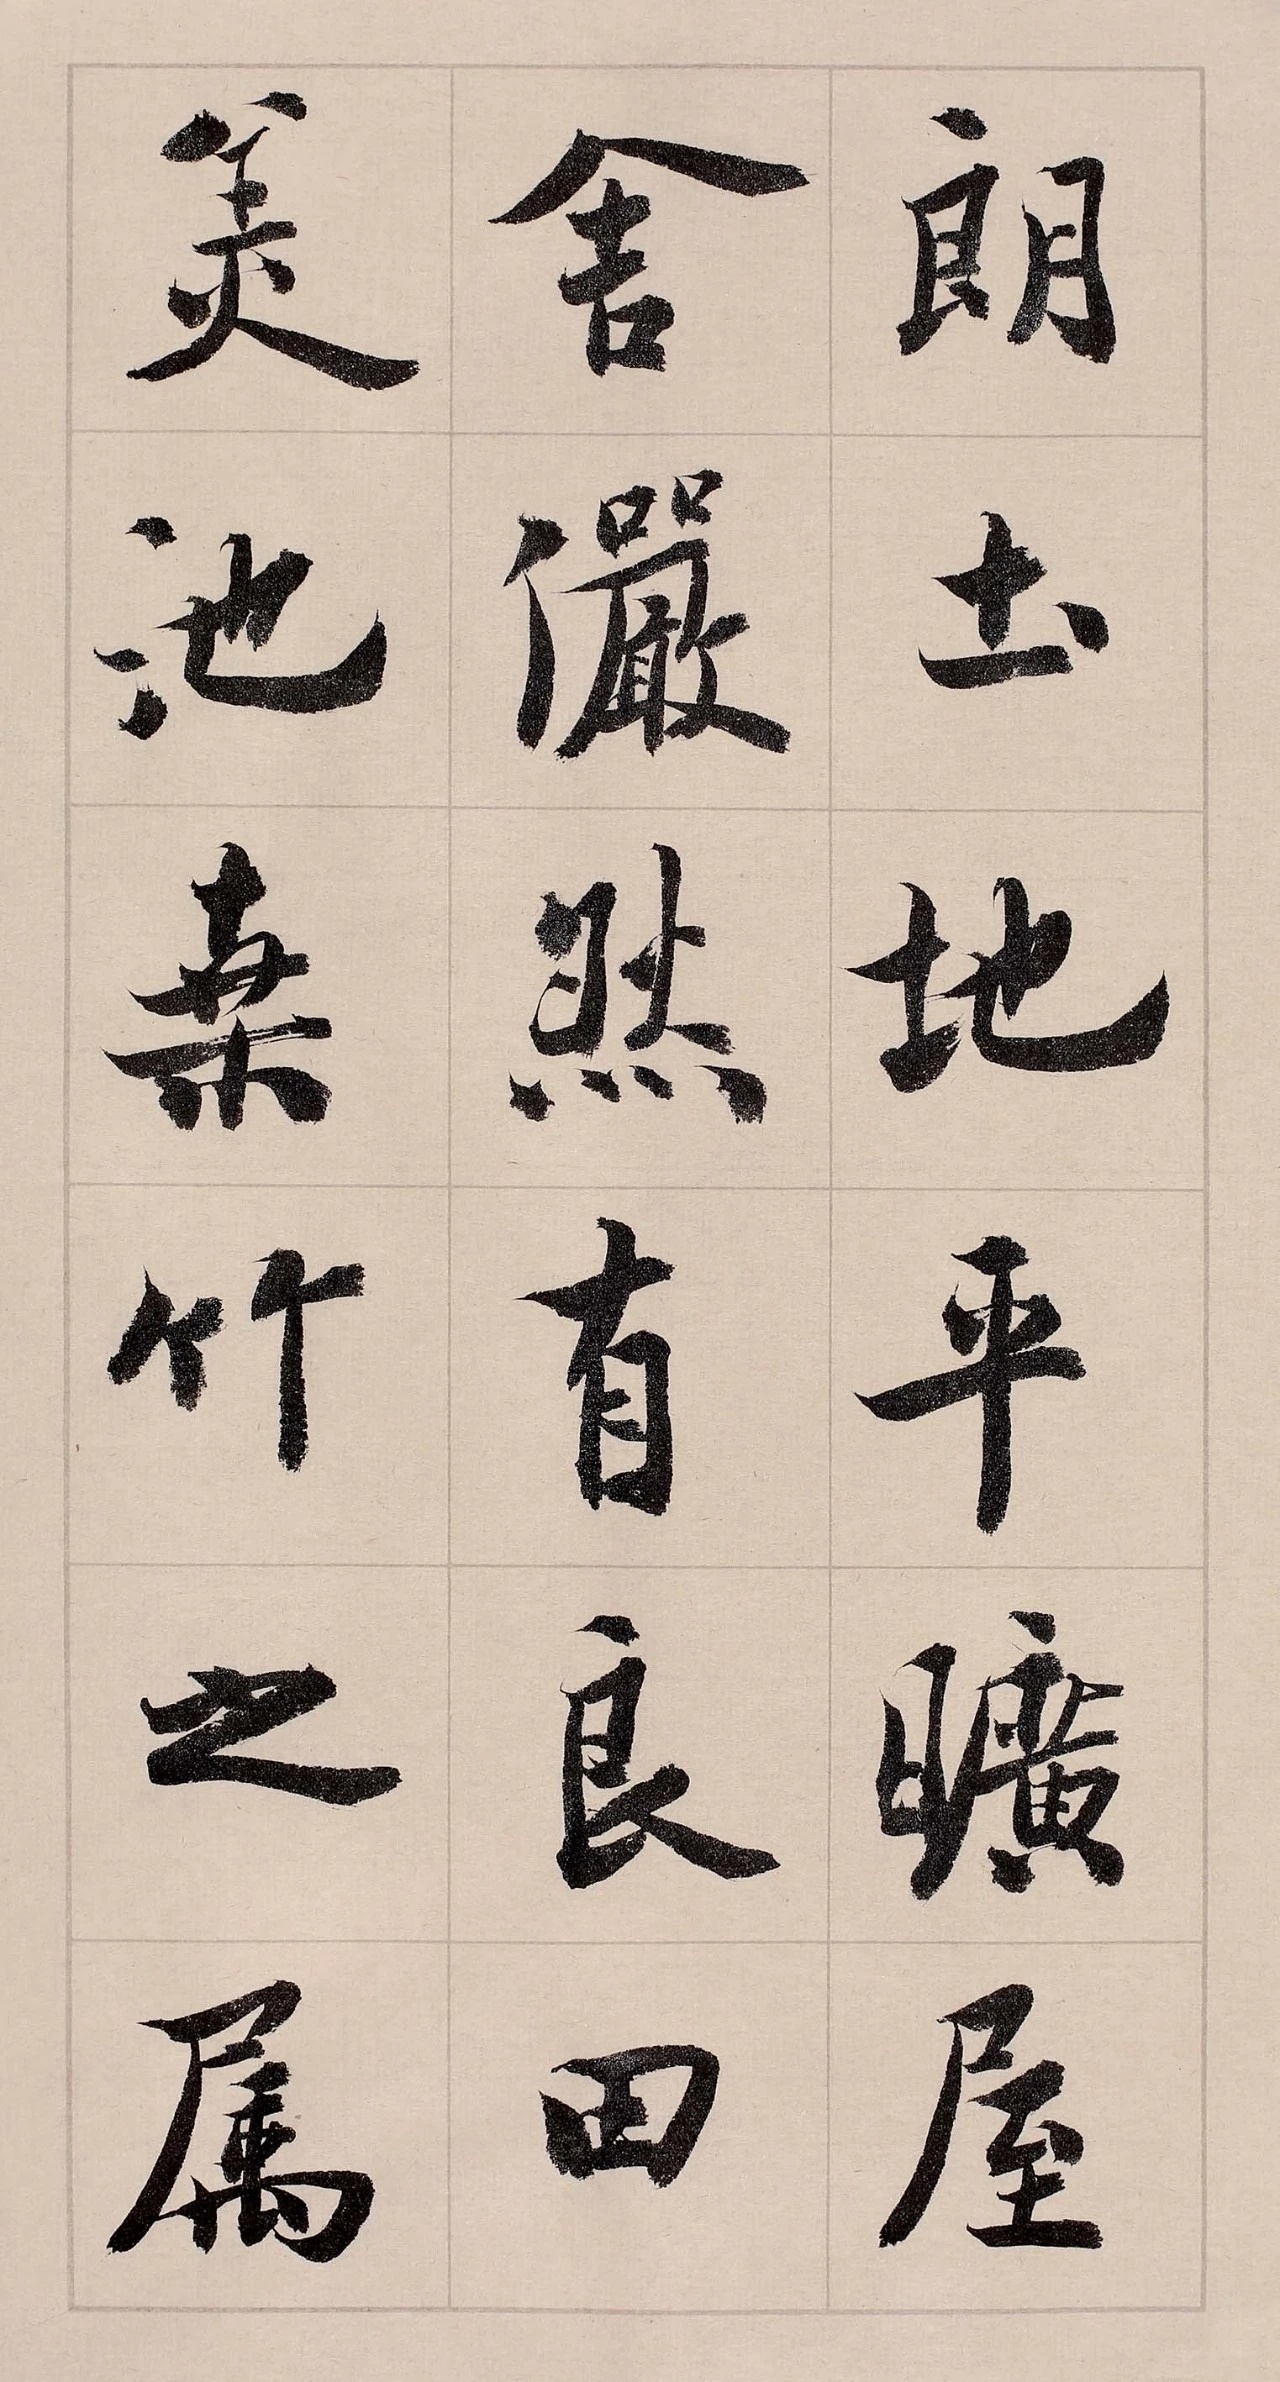 朗土地平曠屋
舍儼然有良田
美池桒竹之属